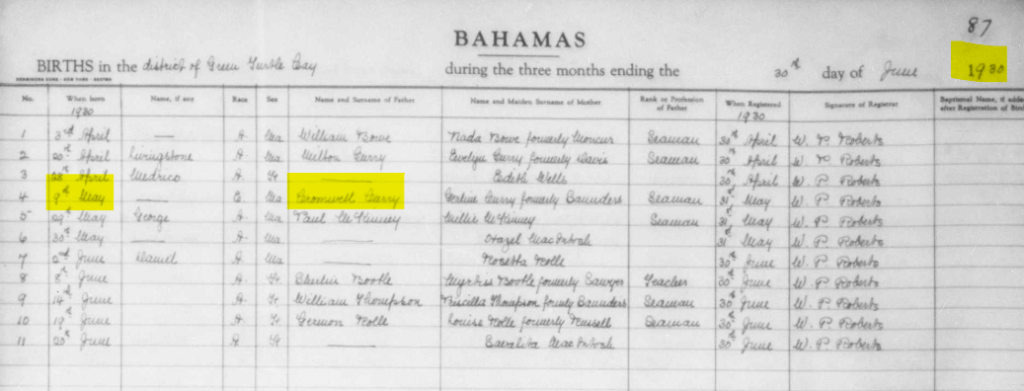 87
BAHAMAS
BIRTHS in the district of Green Turtle Cay during the three months ending the 30th day of June 1930
No. When born Name, if any Race Sex Name and Surname of Father Name and Maiden Surname of Mother Rank or Profession of Father When Registered Signature of Registrar Baptismal Name, if added after Registration of Birth
1930 1930
1 3rd April — A. Ma William Bowe Nada Bowe formerly Seaman 30th April W. P. Roberts
2 20th April Livingstone A. Ma Milton Curry Evelyn Curry formerly Davis Seaman 30th April W. P. Roberts
3 28th April Medrico A. — Edith Wells 30th April W. P. Roberts
4 9th May — E. Ma Cromwell Curry Curry formerly Saunders Seaman 31st May W. P. Roberts
5 May George A. Ma Paul McKinney McKinney Seaman 31st May W. P. Roberts
6 30th May — A. Ma — Hazel McIntosh 31st May W. P. Roberts
7 2nd June Daniel A. Ma — Rosetta Rolle 30th June W. P. Roberts
8 8th June A. Bootle Bootle formerly Sawyer Teacher 30th June W. P. Roberts
9 14th June A. William Thompson Priscilla Thompson formerly Saunders Seaman 30th June W. P. Roberts
10 19th June A. Rolle Louise Rolle formerly Russell Seaman 30th June W. P. Roberts
11 20th June A. — McIntosh 30th June W. P. Roberts